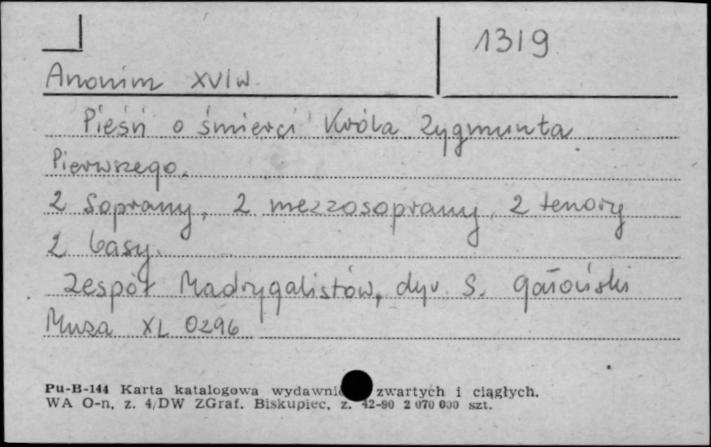 1319
Anonim XVI w.
Pieśń o śmierci Króla Zygmunta
Pierwszego.
2 Soprany, 2 mezzosoprany, 2 tenory
2 basy.
Zespół Madrygalistów, dyr. S. Gałoński
Muza XL 0296
Pu-B-144 Karta katalogowa zwartych i ciągłych.
WA O-n, z. 4/DW ZGraf. Biskupiec, z. 42-90 2 070 000 szt.